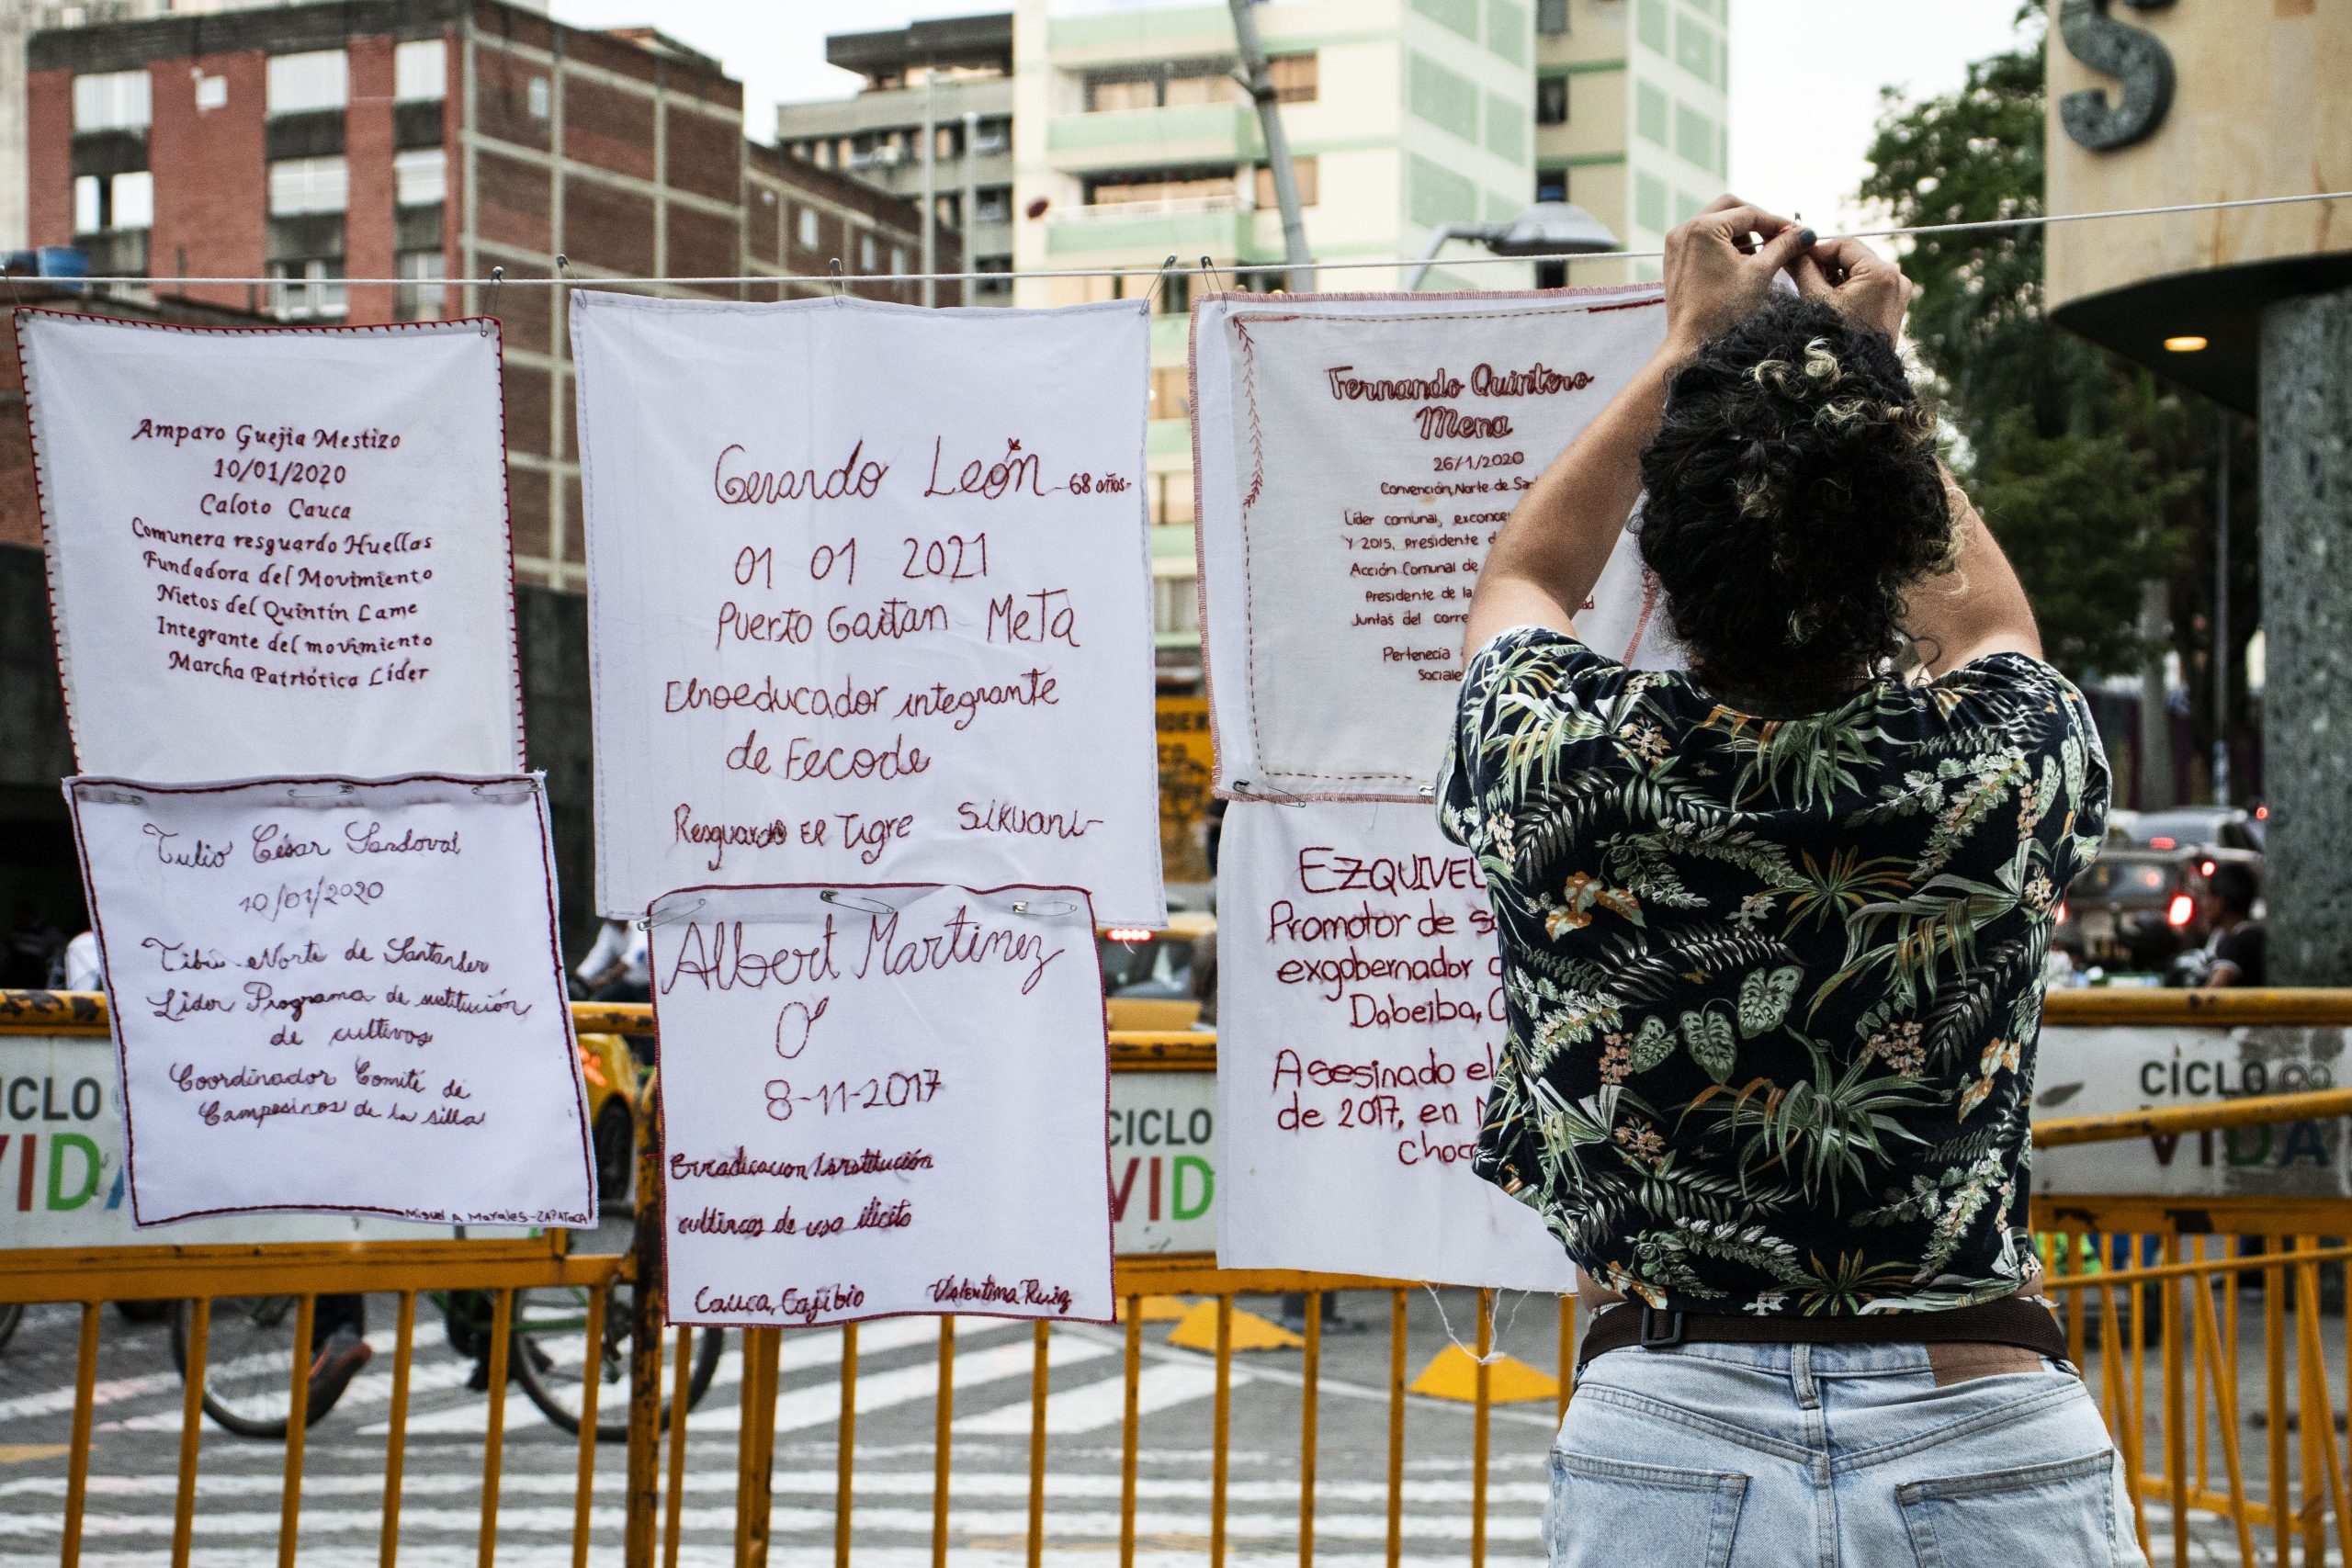 Amparo Guejia Mestizo
10/01/2020
Caloto Cauca
Comunera resguardo Huellas
Fundadora del Movimiento
Nietos del Quintín Lame
Integrante del movimiento
Marcha Patriótica Líder
Tulio César Sandoval
10/01/2020
Tibú Norte de Santander
Líder Programa de sustitución
de cultivos
Coordinador Comité de
Campesinos de la silla
Miguel A Morales-ZAPATOCA
Gerardo León -68 años-
01 01 2021
Puerto Gaitan Meta
Etnoeducador integrante
de Fecode
Resguardo El Tigre Sikuani-
Albert Martinez
O
8-11-2017
cultivos de uso ilícito
Cauca, Cajibio Valentina Ruiz
Fernando Quintero
Mena
26/1/2020
Convención, Norte de
Líder comunal,
Y 2015, Presidente
Acción Comunal de
Presidente de la
Juntas del
Pertenecia
EZQUIVEL
Promotor de
exgobernador
Dabeiba,
Asesinado el
de 2017, en
S
CICLO
VIDA
CICLO
VID
CICLO
VIDA